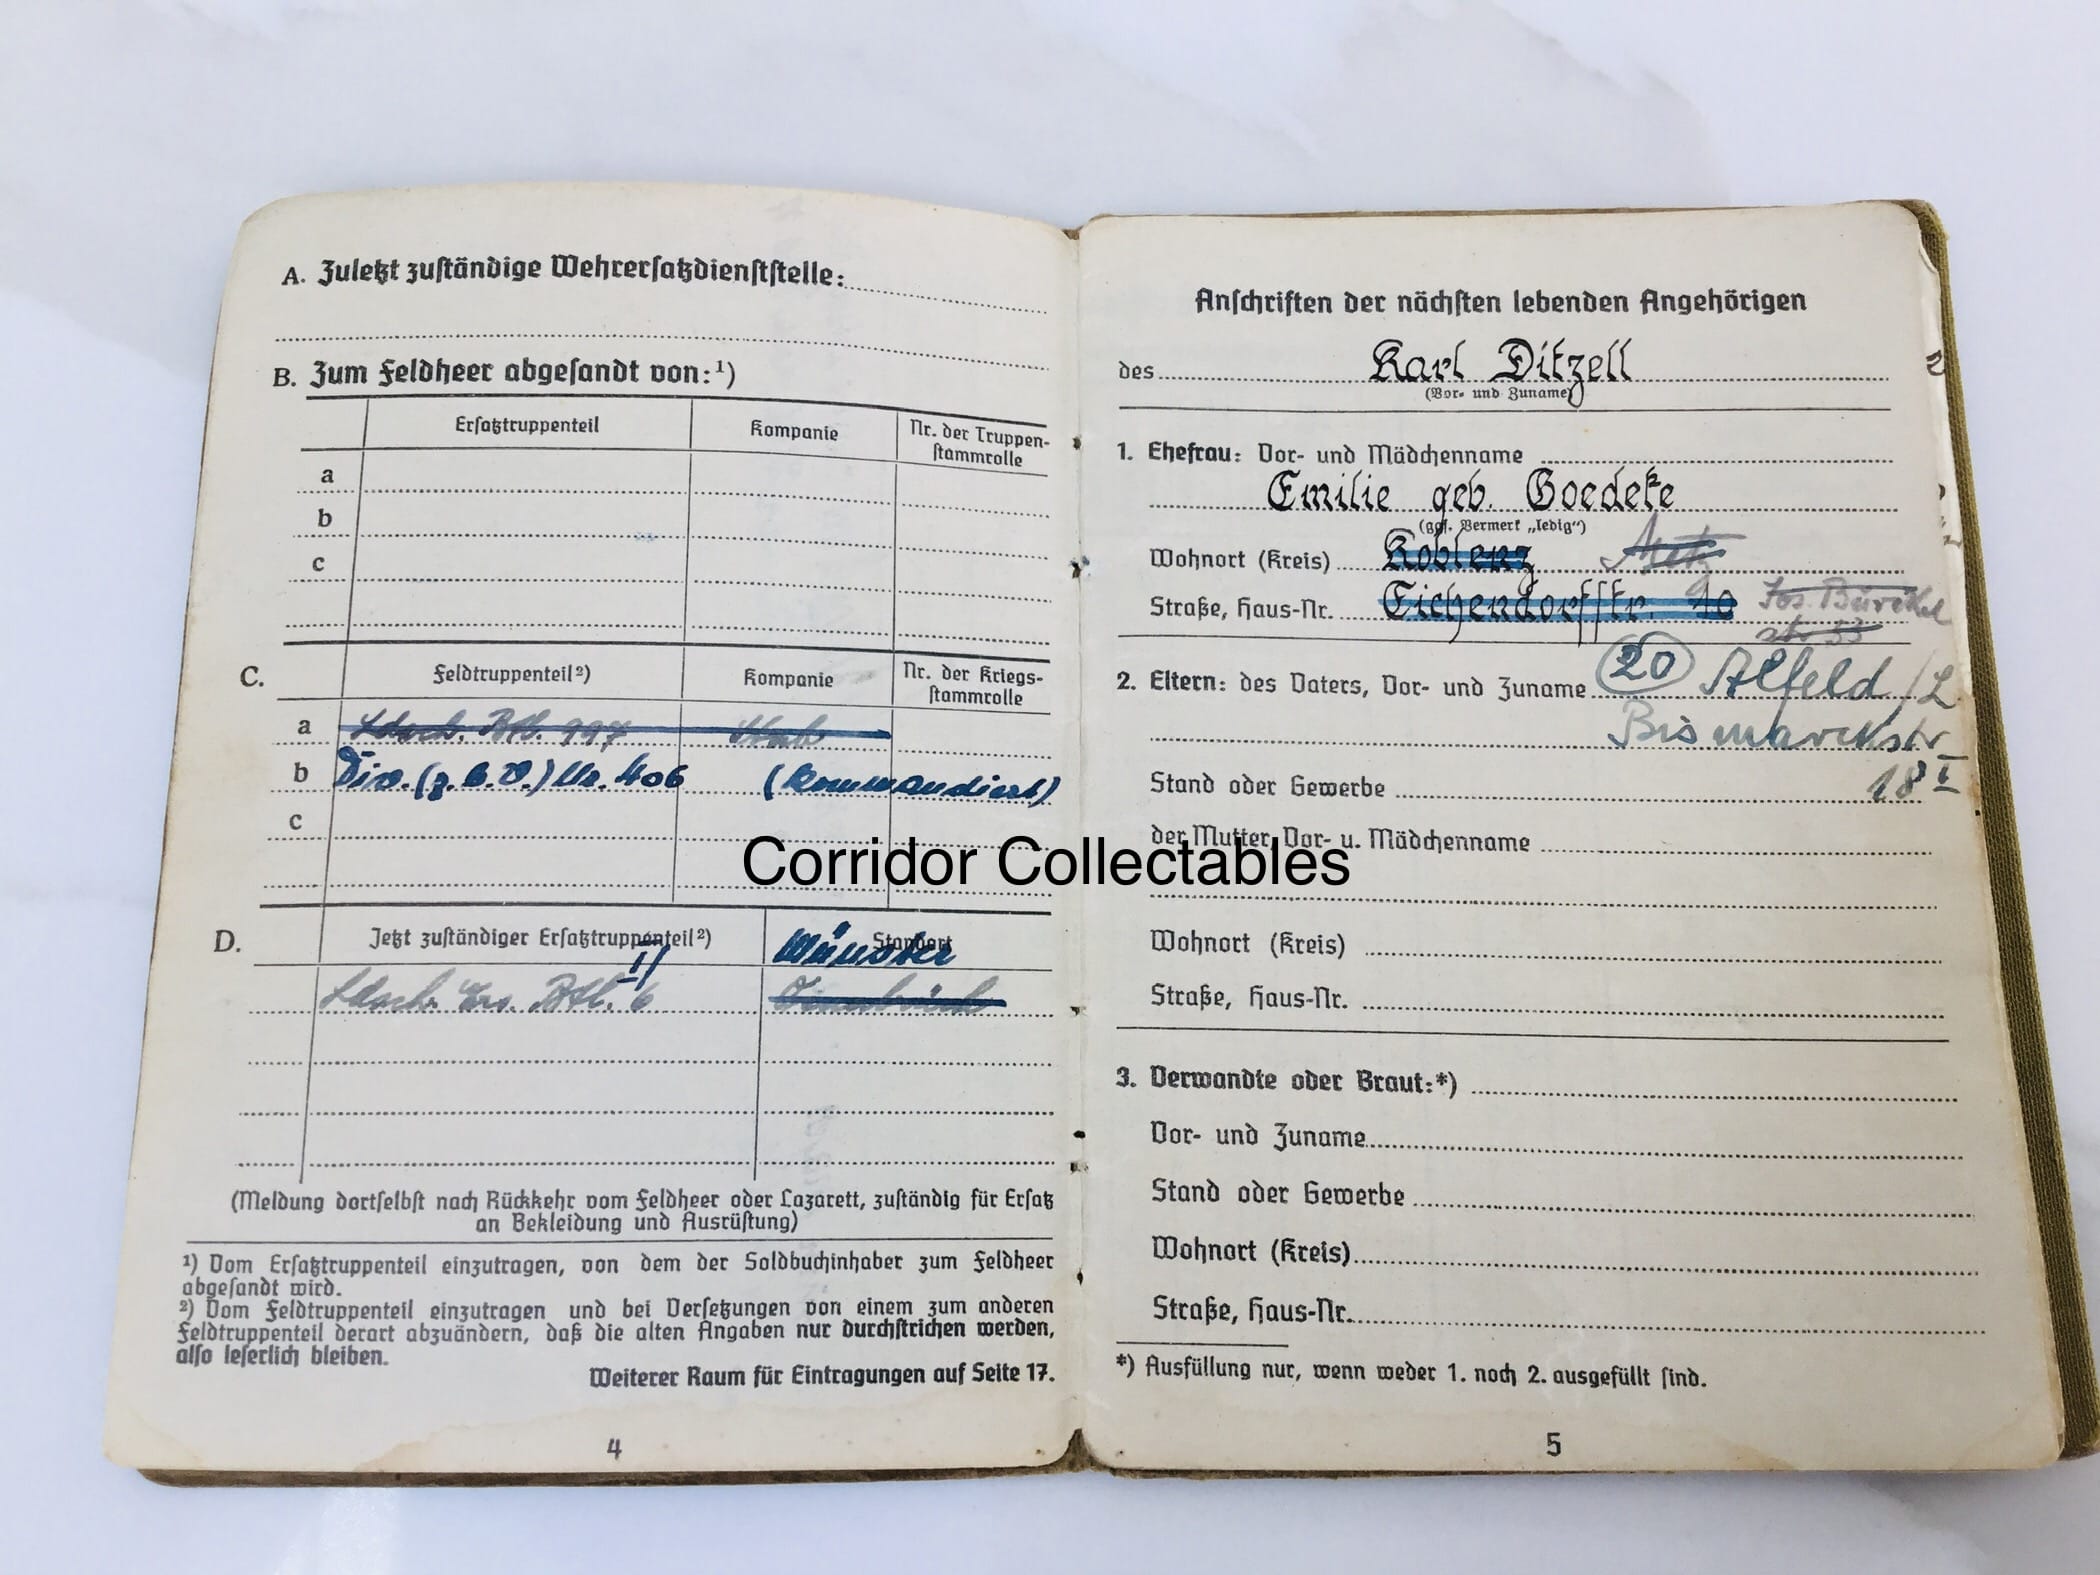 A. Zuletzt zuständige Wehrersatzdienststelle:
B. Zum Feldheer abgesandt von:¹)
Ersatztruppenteil Kompanie Nr. der Truppen-
stammrolle
a
b
c
C. Feldtruppenteil²) Kompanie Nr. der Kriegs-
stammrolle
a Ldsch. Btl. 997 Stab
b Div. (z.b.V.) Nr. 406 (kommandiert)
c
D. Jetzt zuständiger Ersatztruppenteil²) Standort
Münster
I/
Ldsch. Ers. Btl. 6 Osnabrück
(Meldung dortselbst nach Rückkehr vom Feldheer oder Lazarett, zuständig für Ersatz
an Bekleidung und Ausrüstung)
¹) Vom Ersatztruppenteil einzutragen, von dem der Soldbuchinhaber zum Feldheer
abgesandt wird.
²) Vom Feldtruppenteil einzutragen und bei Versetzungen von einem zum anderen
Feldtruppenteil derart abzuändern, daß die alten Angaben nur durchstrichen werden,
also leserlich bleiben.
Weiterer Raum für Eintragungen auf Seite 17.
4
Anschriften der nächsten lebenden Angehörigen
des Karl Ditzell
(Vor- und Zuname)
1. Ehefrau: Vor- und Mädchenname
Emilie geb. Goedeke
(ggf. Vermerk „ledig“)
Wohnort (Kreis) Koblenz Metz
Straße, Haus-Nr. Eichendorffstr. 90 Jos. Bürckel
str 53
2. Eltern: des Vaters, Vor- und Zuname 20 Alfeld/L
Bismarckstr
Stand oder Gewerbe 18 I
der Mutter, Vor- u. Mädchenname
Corridor Collectables
Wohnort (Kreis)
Straße, Haus-Nr.
3. Verwandte oder Braut:*)
Vor- und Zuname
Stand oder Gewerbe
Wohnort (Kreis)
Straße, Haus-Nr.
*) Ausfüllung nur, wenn weder 1. noch 2. ausgefüllt sind.
5